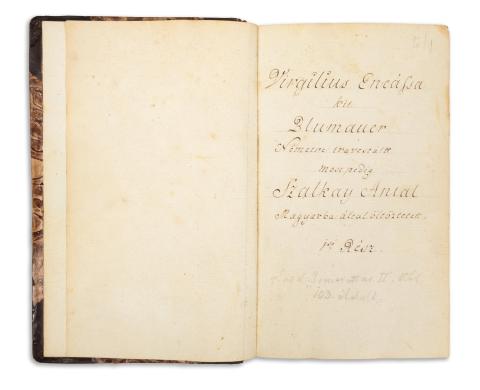 Virgilius Eneássa
kit
Blumauer
Németre travestált
most pedig
Szalkay Antal
Magyarba által öltöztetett.
1ső Rész.
II.